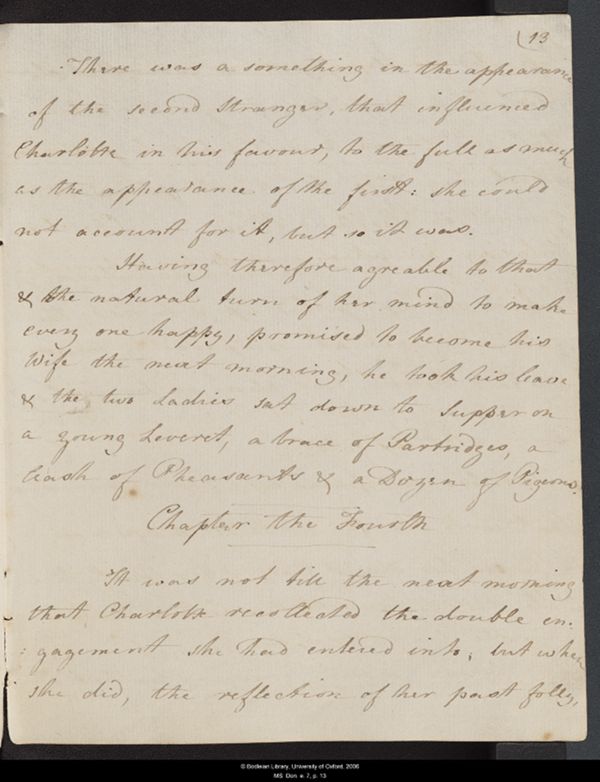 (13
There was a something in the appearance
of the second Stranger, that influenced
Charlotte in his favour, to the full as much
as the appearance of the first: she could
not account for it, but so it was.
Having therefore agreable to that
& the natural turn of her mind to make
every one happy, promised to become his
Wife the next morning, he took his leave
& the two Ladies sat down to Supper on
a young Leveret, a brace of Partridges, a
leash of Pheasants & a Dozen of Pigeons.
Chapter the Fourth
It was not till the next morning
that Charlotte recollected the double en-
:gagement she had entered into; but when
she did, the reflection of her past folly,
© Bodleian Library, University of Oxford, 2006
MS. Don. e. 7, p. 13